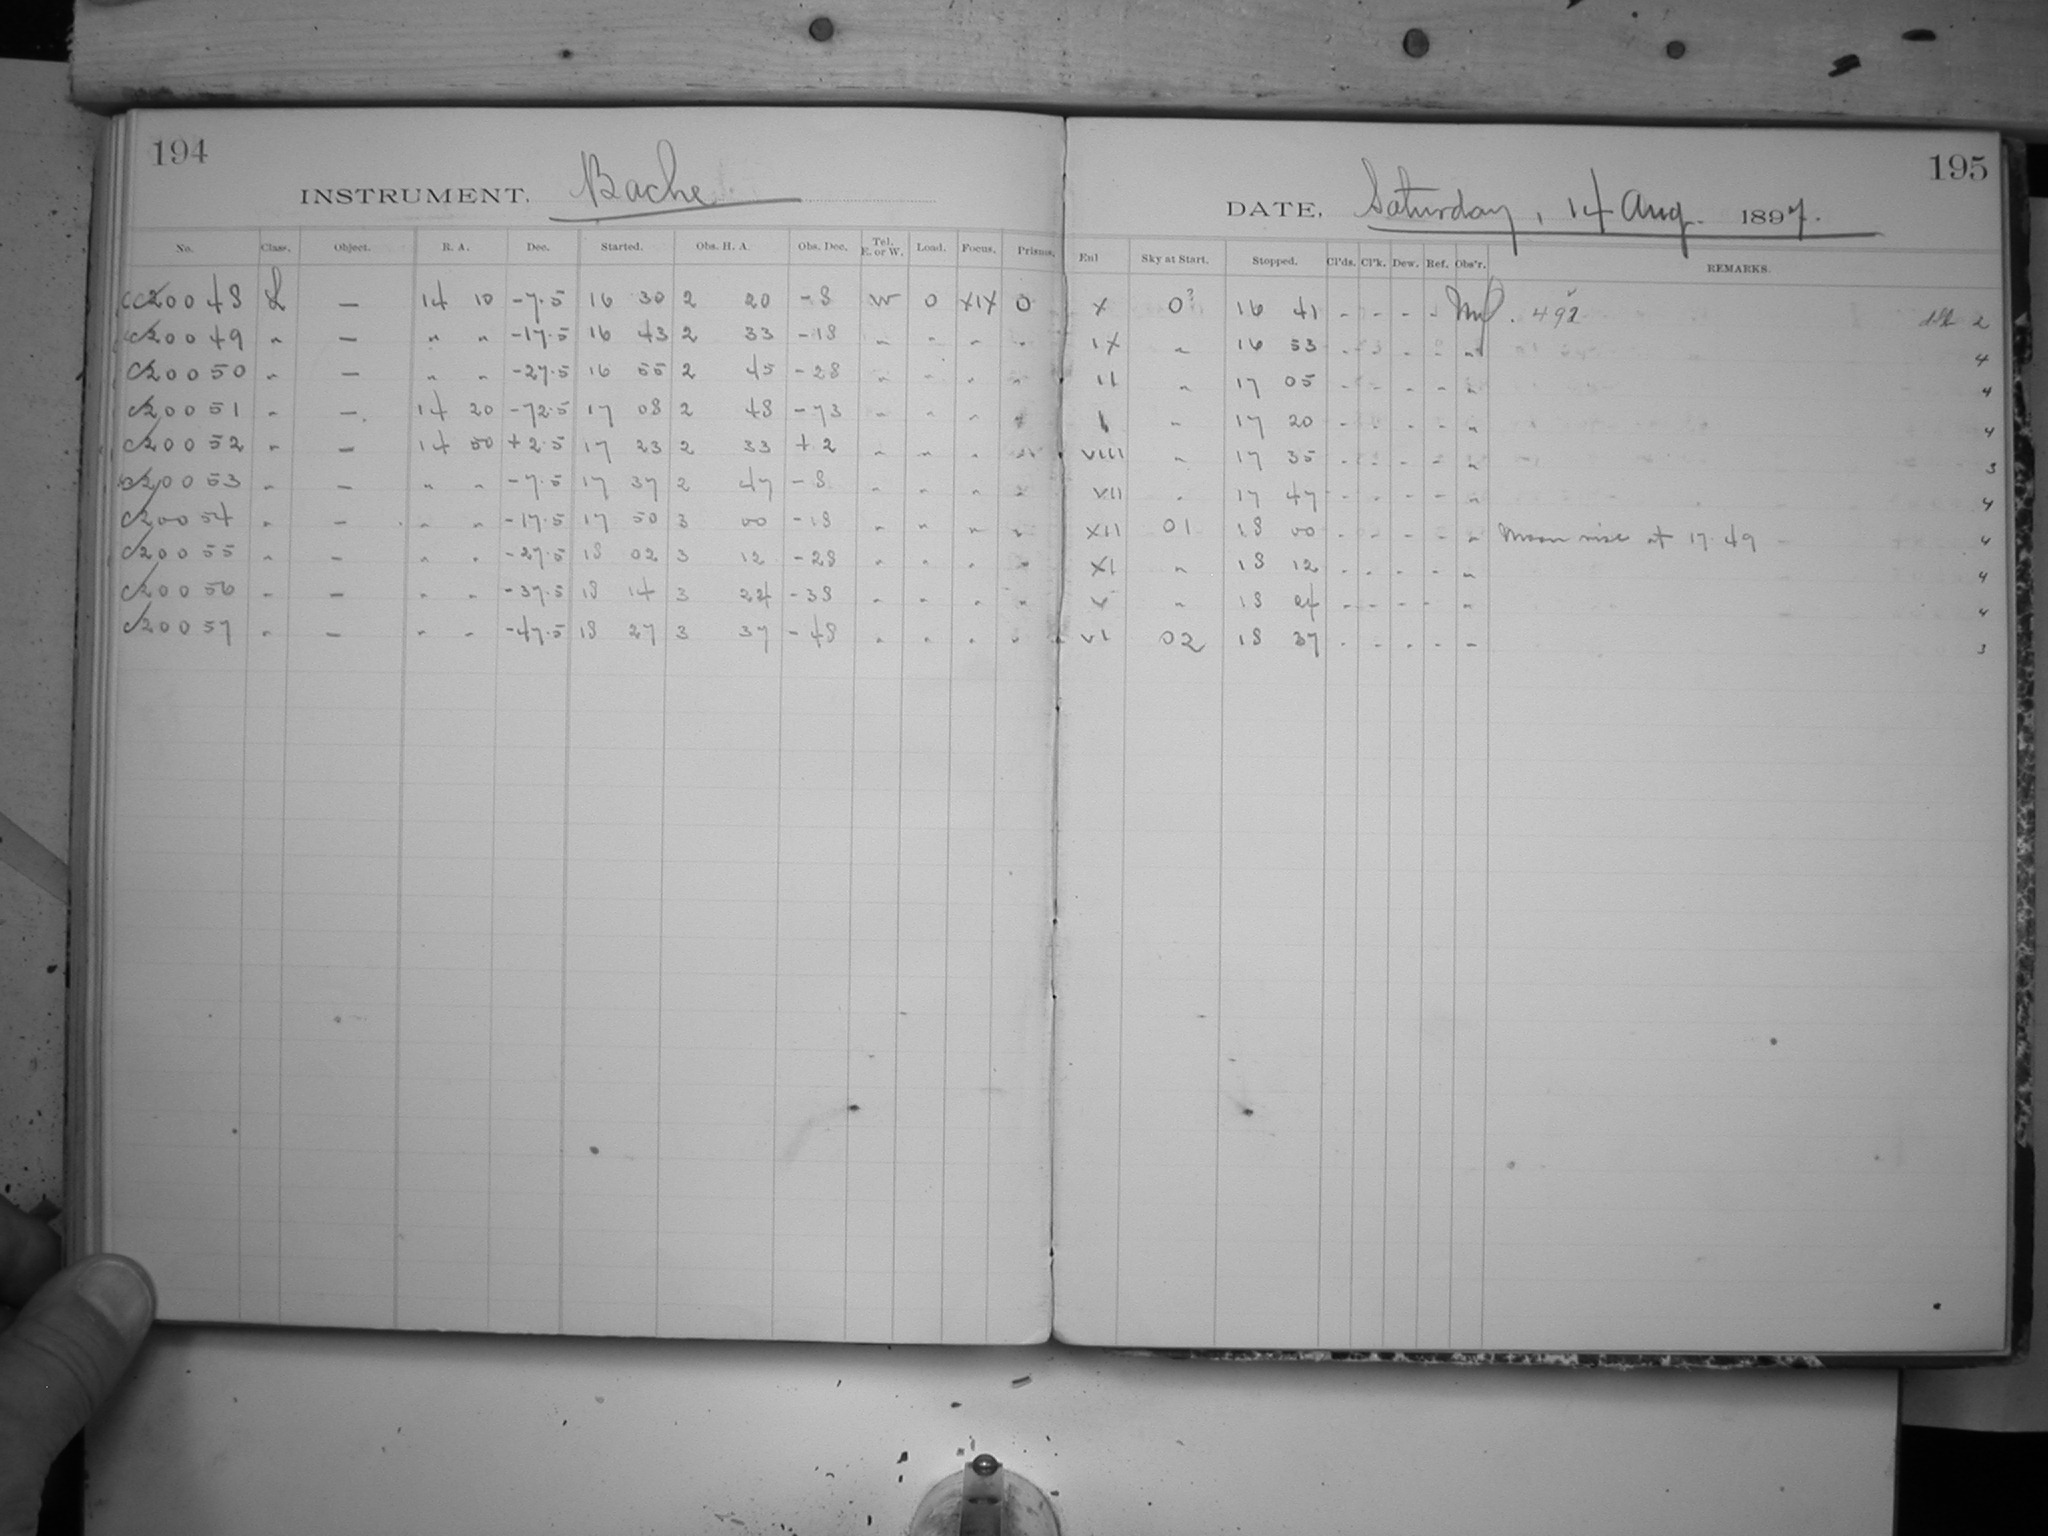 194
INSTRUMENT. Bache
No. Class. Object. R. A. Dec. Started. Obs. H. A. Obs. Dec. Tel. E. or W. Load. Focus. Prisms.
20048 L — 14 10 -7.5 16 30 2 20 -8 W 0 XIX 0
20049 " — " " -17.5 16 43 2 33 -18 " " " "
20050 " — " " -27.5 16 55 2 45 -28 " " " "
20051 " — 14 20 -72.5 17 08 2 48 -73 " " " "
20052 " — 14 50 +2.5 17 23 2 33 +2 " " " "
20053 " — " " -7.5 17 37 2 47 -8 " " " "
20054 " — " " -17.5 17 50 3 00 -18 " " " "
20055 " — " " -27.5 18 02 3 12 -28 " " " "
20056 " — " " -37.5 18 14 3 24 -38 " " " "
20057 " — " " -47.5 18 27 3 37 -48 " " " "
195
DATE, Saturday, 14 Aug. 1897.
Sky at Start. Stopped. Cl'ds. Cl'k. Dew. Ref. Obs'r. REMARKS.
X 0? 16 41 - - - - 492 2
IX " 16 53 - - - - " 4
II " 17 05 - - - - " 4
I " 17 20 - - - - " 4
VIII " 17 35 - - - - " 3
VII " 17 47 - - - - " 4
XII 01 18 00 - - - - " Moon rise at 17.49 4
XI " 18 12 - - - - " 4
V " 18 24 - - - - " 4
VI 02 18 37 - - - - " 3